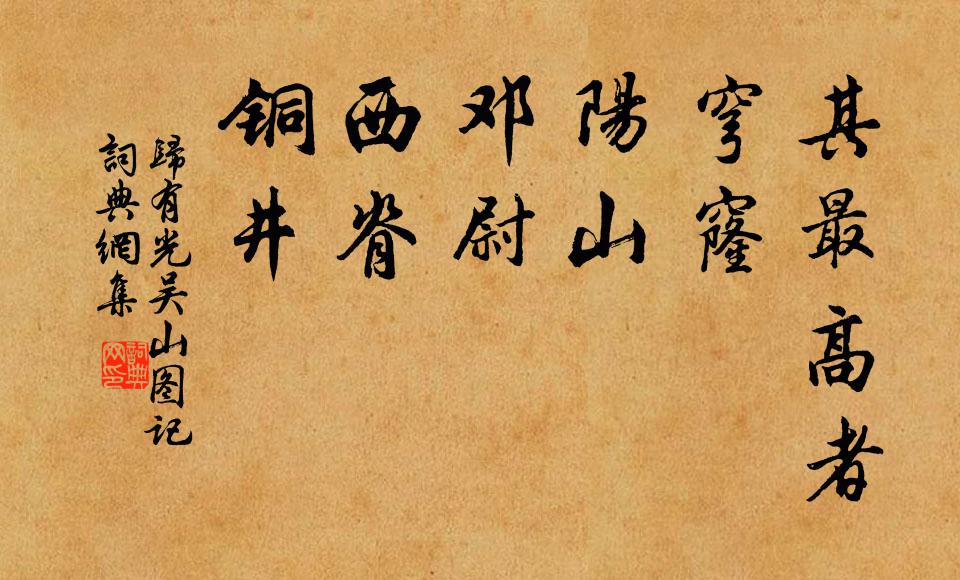 其最高者
穹窿
陽山
邓尉
西脊
铜井
歸有光吴山图记
詞典網集
詞典网印